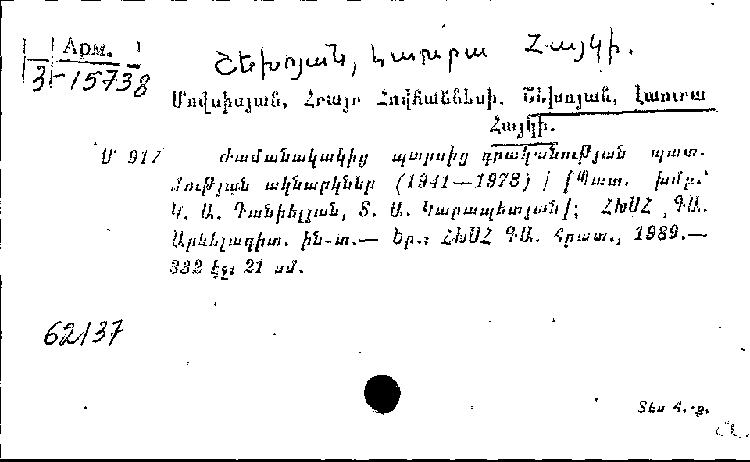 Арм.
3-15738
Շեխոյան, Լաուրա Հայկի.
Մովսիսյան, Հրայր Հովհաննեսի. Շեխոյան, Լաուրա
Հայկի.
Մ 917 Ժամանակակից պարսից գրականության պատ-
մության ակնարկներ (1941—1978) / [Պատ. խմբ.՝
Կ. Ա. Դանիելյան, Տ. Ա. Կարապետյան]; ՀԽՍՀ ԳԱ.
Արևելագիտ. ին-տ.— Եր.: ՀԽՍՀ ԳԱ. հրատ., 1989.—
332 էջ; 21 սմ.
62137
Տես հ. ք.